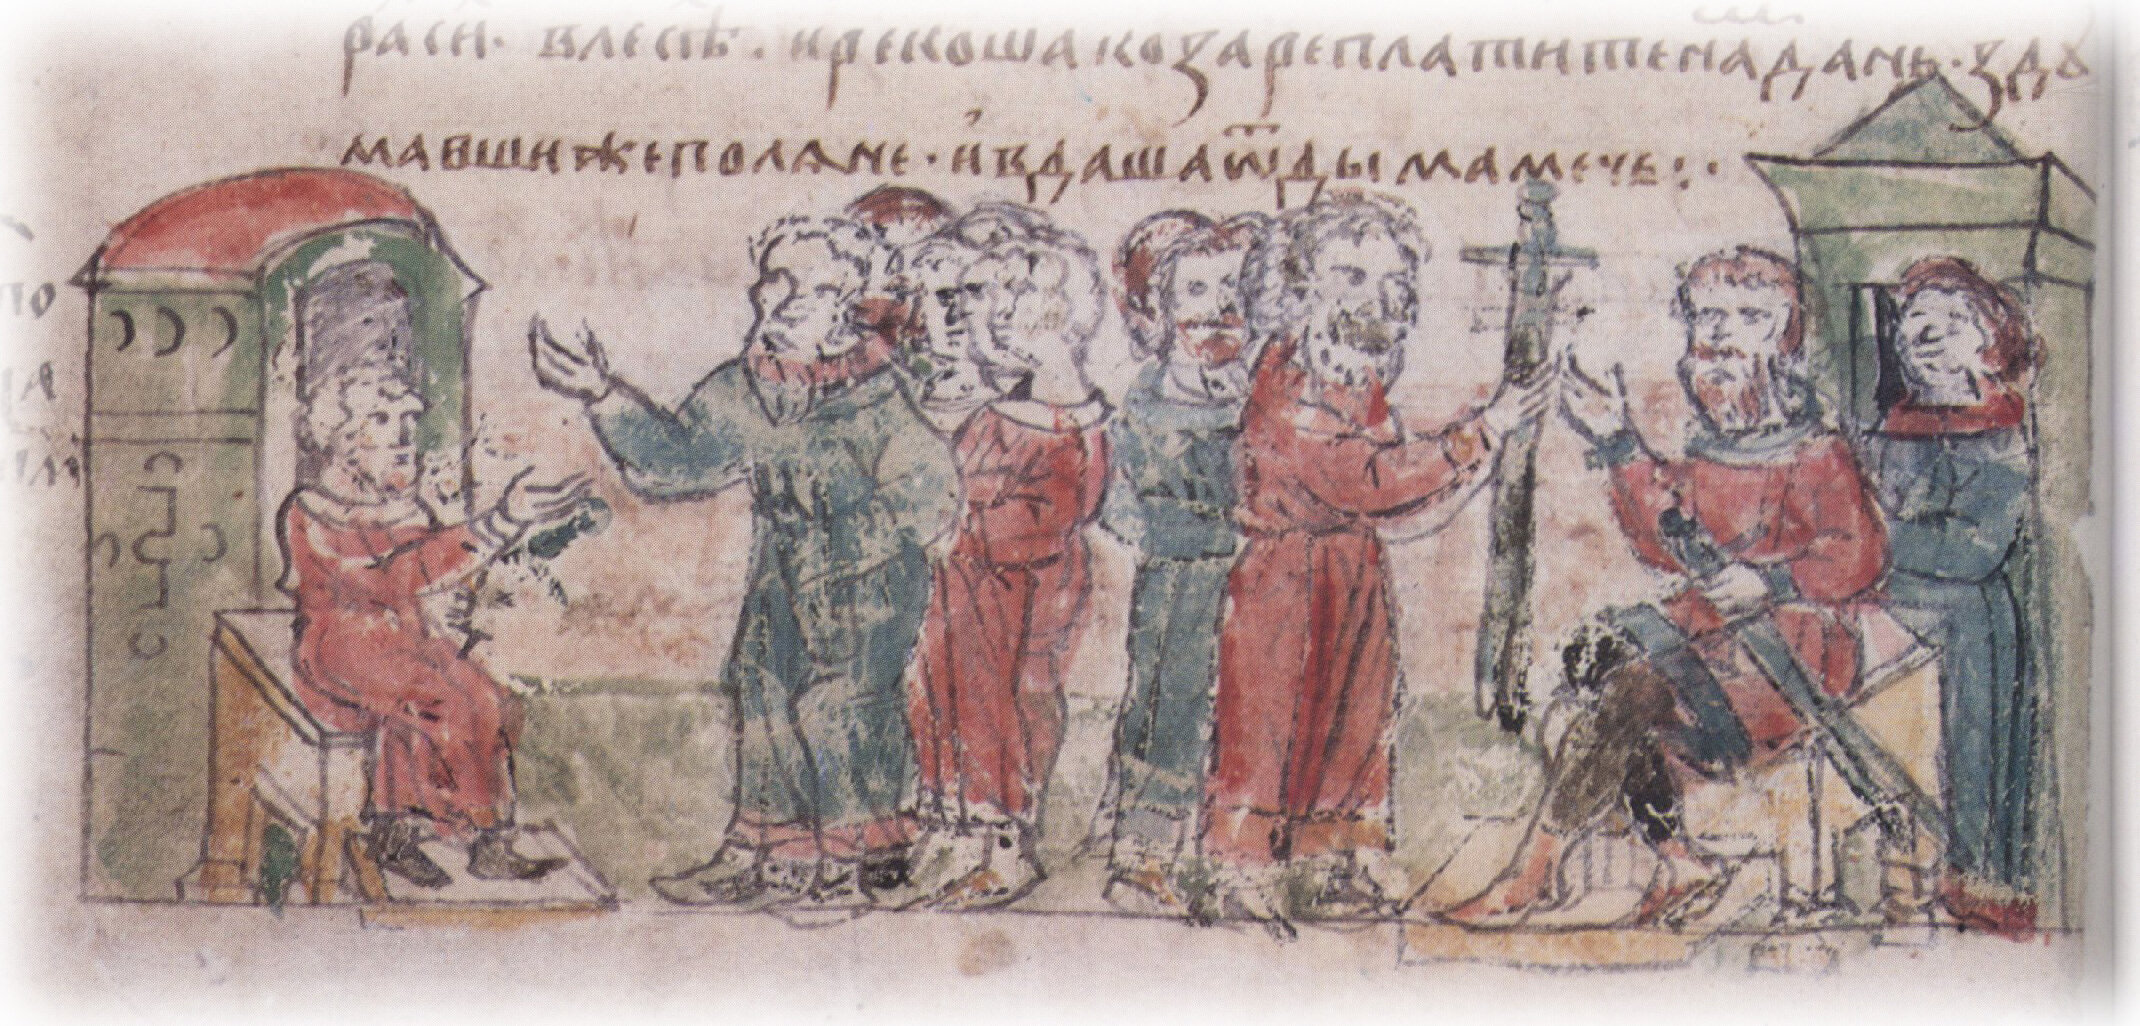 раси· влесѣ· ирекошакозареплатитенадань·здꙋ
мавшижеполѧне·ивдашаѿдымамечь:·